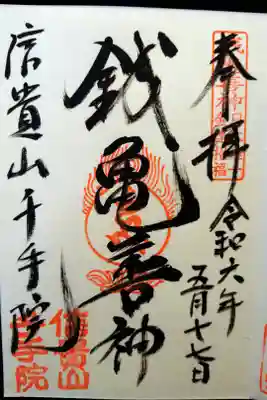 奉拝
令和六年
五月十七日
銭亀善神
信貴山千手院
信貴山
千手院